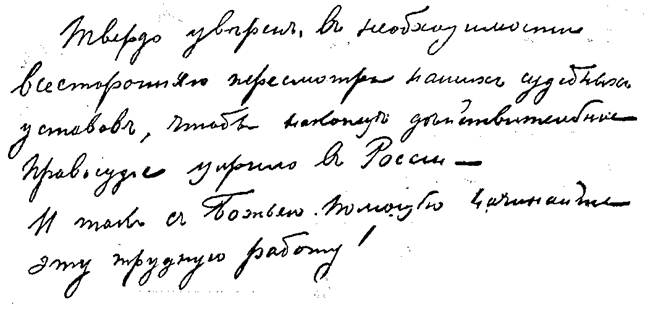 Твердо увѣренъ въ необходимости
всесторонняго пересмотра нашихъ судебныхъ
уставовъ, чтобы наконецъ дѣйствительное
правосудіе царило въ Россіи —
И такъ съ Божьею помощью начинайте
эту трудную работу!